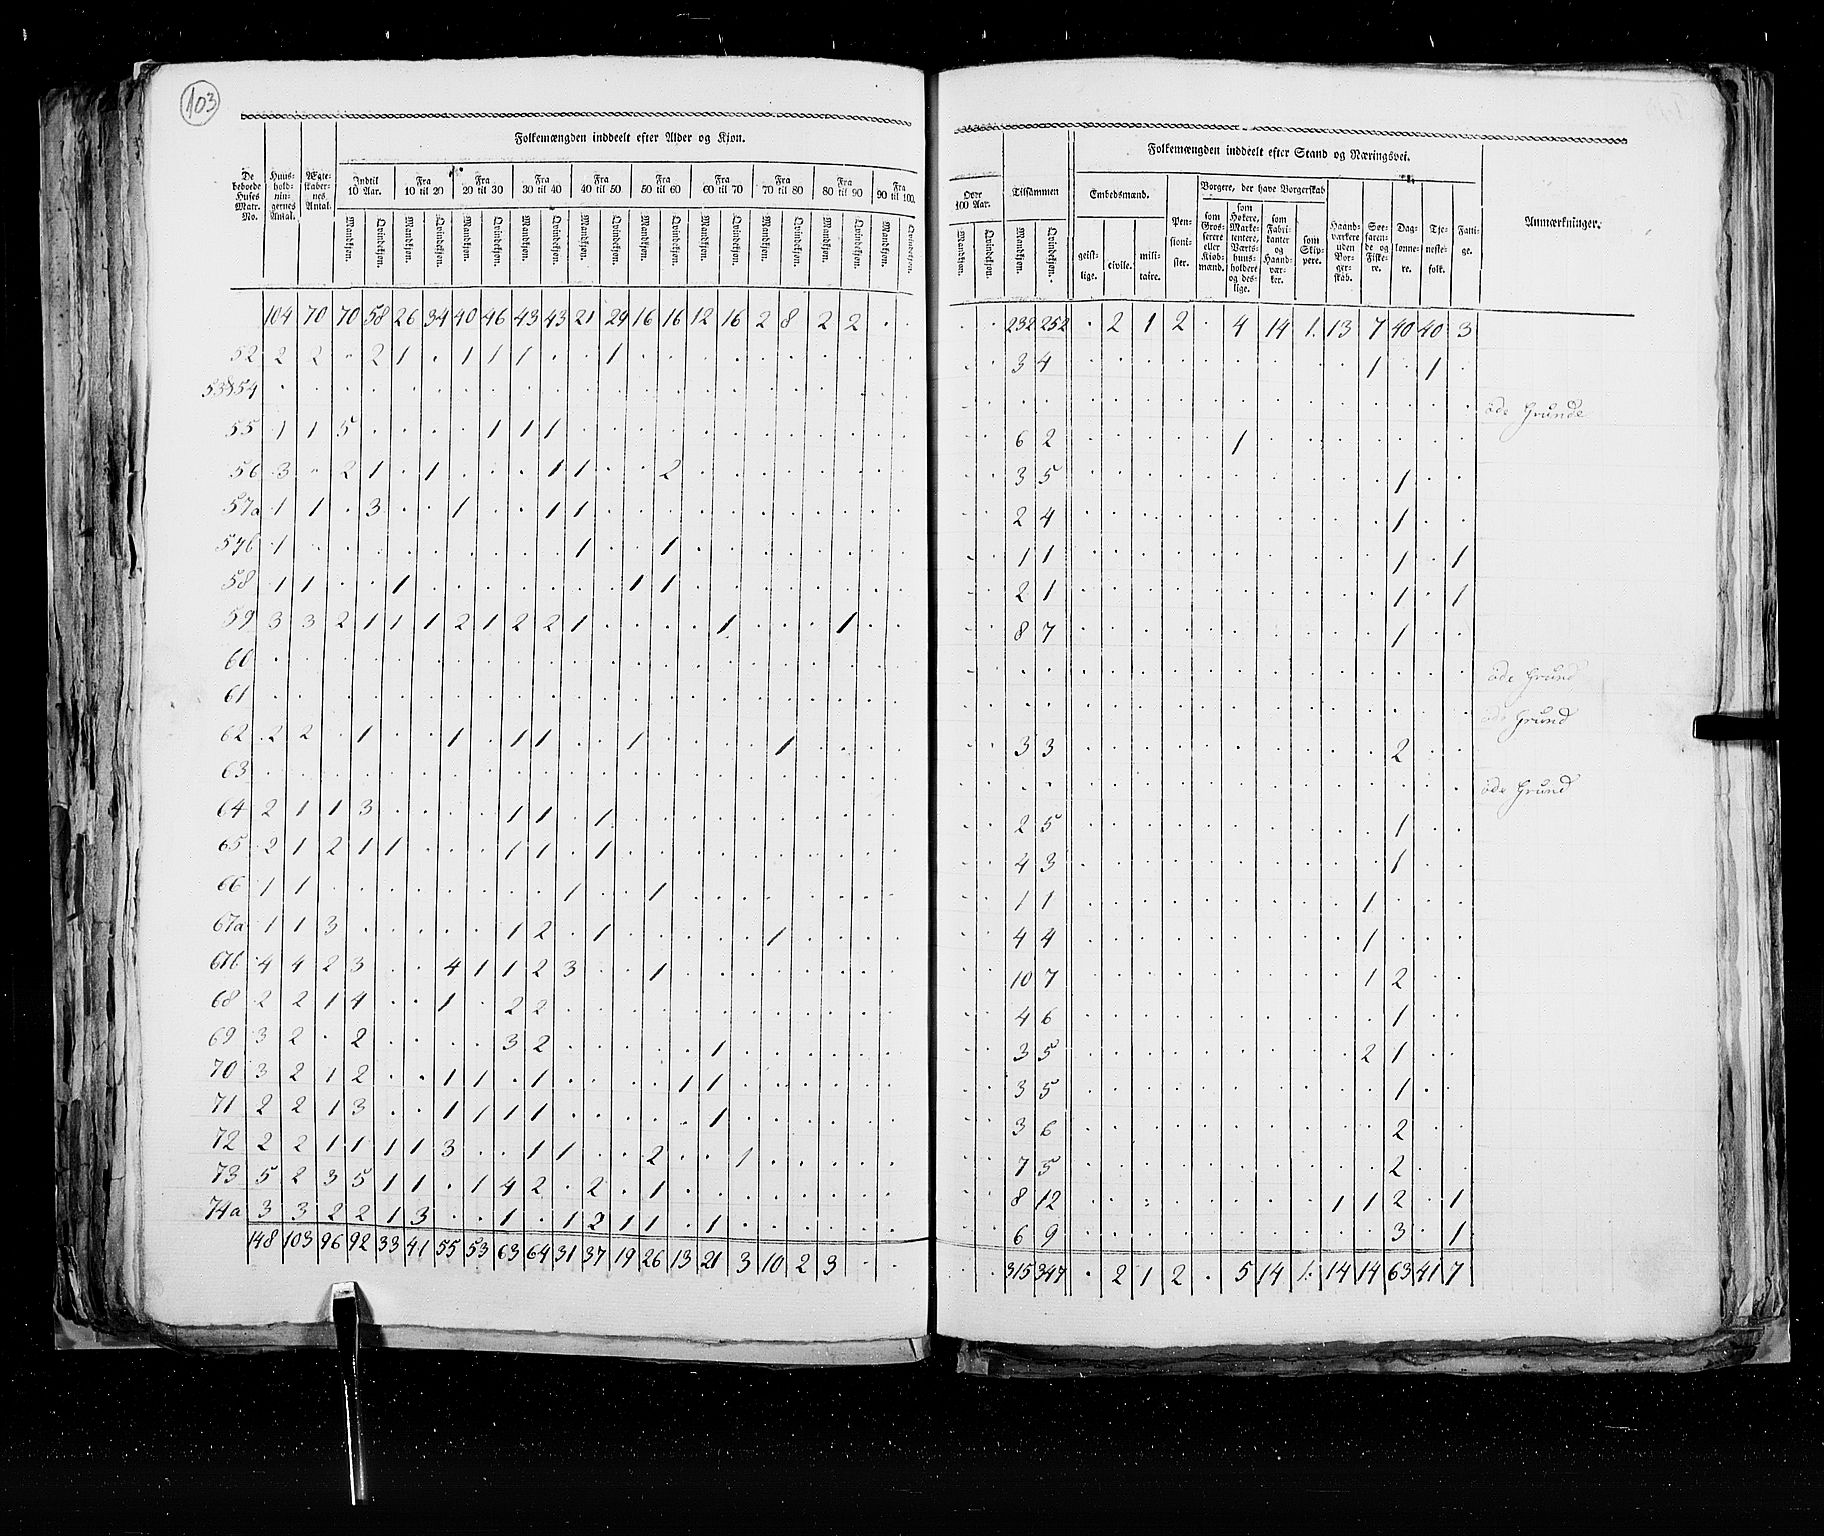 103
Folkemængden inddeelt efter Alder og Kjøn.
De beboede Huses Matr. No. | Huus-hold-nin-gernes Antal. | Ægte-skaber-nes Antal. | Indtil 10 Aar. | Fra 10 til 20 | Fra 20 til 30 | Fra 30 til 40 | Fra 40 til 50 | Fra 50 til 60 | Fra 60 til 70 | Fra 70 til 80 | Fra 80 til 90 | Fra 90 til 100.
Mandkjøn. Qvindekjøn. Mandkjøn. Qvindekjøn. Mandkjøn. Qvindekjøn. Mandkjøn. Qvindekjøn. Mandkjøn. Qvindekjøn. Mandkjøn. Qvindekjøn. Mandkjøn. Qvindekjøn. Mandkjøn. Qvindekjøn. Mandkjøn. Qvindekjøn. Mandkjøn. Qvindekjøn.
104 70 70 58 26 34 40 46 43 43 21 29 16 16 12 16 2 8 2 2 . .
52 2 2 . 2 1 . 1 1 1 . . 1 . . . . . . . . . .
53&54 . . . . . . . . . . . . . . . . . . . . . .
55 1 1 5 . . . . 1 1 1 . . . . . . . . . . . .
56 3 . 2 1 . 1 . . . 1 1 . . 2 . . . . . . . .
57a 1 1 . 3 . . 1 . . 1 1 . . . . . . . . . . .
57b 1 . . . . . . . . . 1 . . 1 . . . . . . . .
58 1 1 . . 1 . . . . . . . 1 1 . . . . . . . .
59 3 3 2 1 1 1 2 1 2 2 1 . . . . 1 . . . 1 . .
60 . . . . . . . . . . . . . . . . . . . . . .
61 . . . . . . . . . . . . . . . . . . . . . .
62 2 2 . 1 . . 1 . 1 1 . . 1 . . . . 1 . . . .
63 . . . . . . . . . . . . . . . . . . . . . .
64 2 1 1 3 . . . . 1 1 . 1 . . . . . . . . . .
65 2 1 2 1 1 . . . 1 1 . 1 . . . . . . . . . .
66 1 1 . . . . . . . . 1 . . 1 . . . . . . . .
67a 1 1 3 . . . . . 1 2 . 1 . . . . . 1 . . . .
67b 4 4 2 3 . . 4 1 1 2 3 . . 1 . . . . . . . .
68 2 2 1 4 . . 1 . 2 2 . . . . . . . . . . . .
69 3 2 . 2 . . . . 3 2 . . . . . 1 . . . . . .
70 3 2 1 2 . . 1 1 . 1 . . . . 1 1 . . . . . .
71 2 2 1 3 . . 1 1 1 1 . . . . . 1 . . . . . .
72 2 2 1 1 1 1 3 . . 1 1 . . 2 . . 1 . . . . .
73 5 2 3 5 1 1 . 1 4 2 . 2 . 1 . . . . . . . .
74a 3 3 2 2 1 3 . . 1 . 1 2 1 1 . 1 . . . . . .
148 103 96 92 33 41 55 53 63 64 31 37 19 26 13 21 3 10 2 3 . .
Folkemængden inddeelt efter Stand og Næringsvei.
Over 100 Aar. | Tilsammen | Embedsmænd. | Pen-sioni-ster. | Borgere, der have Borgerskab | Haand-værkere uden Bor-ger-skab. | Søe-faren-de og Fiske-re. | Dag-lønne-re. | Tje-neste-folk. | Fatti-ge. | Anmærkninger.
Mandkjøn. Qvindekjøn. Mandkjøn. Qvindekjøn. geist-lige. civile. mili-taire. som Gros-serere eller Kiøb-mænd. som Høkere, Marke-tentere, Værts-huus-holdere og des-lige. som Fabri-kanter og Haand-vær-ker. som Skip-pere.
. . 232 252 . 2 1 2 . 4 14 1. 13 7 40 40 3
. . 3 4 . . . . . . . . . 1 . 1 .
. . . . . . . . . . . . . . . . . öde Grunde
. . 6 2 . . . . . 1 . . . . . . .
. . 3 5 . . . . . . . . . . 1 . .
. . 2 4 . . . . . . . . . . 1 . .
. . 1 1 . . . . . . . . . . 1 . 1
. . 2 1 . . . . . . . . . . 1 . 1
. . 8 7 . . . . . . . . . . 1 . .
. . . . . . . . . . . . . . . . . öde Grund
. . . . . . . . . . . . . . . . . öde Grund
. . 3 3 . . . . . . . . . . 2 . .
. . . . . . . . . . . . . . . . . öde Grund
. . 2 5 . . . . . . . . . . 1 . .
. . 4 3 . . . . . . . . . . 1 . .
. . 1 1 . . . . . . . . . 1 . . .
. . 4 4 . . . . . . . . . 1 . . .
. . 10 7 . . . . . . . . . 1 2 . .
. . 4 6 . . . . . . . . . . 1 . .
. . 3 5 . . . . . . . . . 2 1 . .
. . 3 5 . . . . . . . . . . 1 . .
. . 3 6 . . . . . . . . . . 2 . .
. . 7 5 . . . . . . . . . . 2 . .
. . 8 12 . . . . . . . . 1 1 2 . 1
. . 6 9 . . . . . . . . . . 3 . 1
. . 315 347 . 2 1 2 . 5 14 1. 14 14 63 41 7